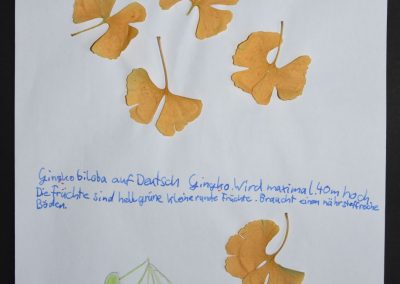 Gingko biloba auf Deutsch Gingko. Wird maximal 40m hoch.
Die Früchte sind hellgrüne kleine runde Früchte. Braucht einen nährstoffreiche
Böden.